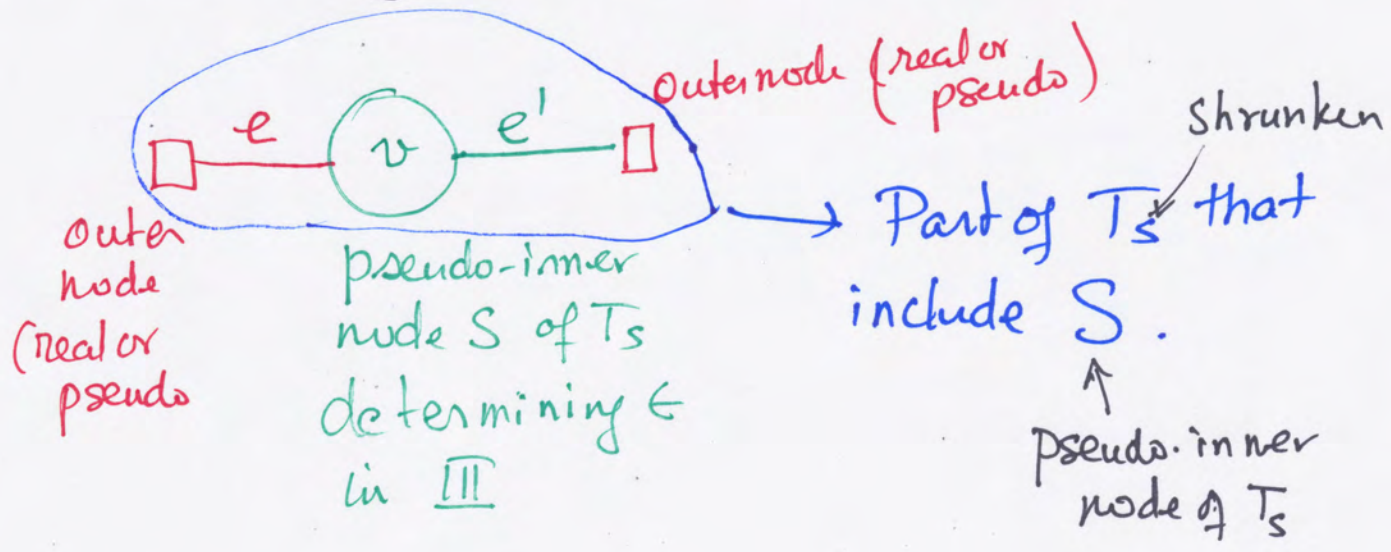 Outer node (real or
pseudo)
shrunken
e
v
e'
Part of Ts that
include S.
outer
node
(real or
pseudo
pseudo-inner
node S of Ts
determining ϵ
in III
pseudo-inner
node of Ts